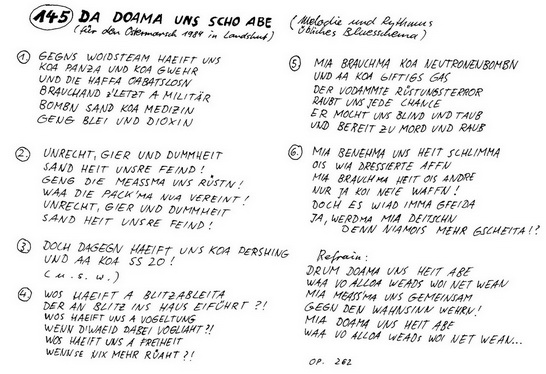 145 DA DOAMA UNS SCHO ABE
(für den Ostermarsch 1984 in Landshut)
(Melodie und Rythmus
übliches Bluesschema)
1. GEGNS WOIDSTEAM HAEIFT UNS
KOA PANZA UND KOA GWEHR
UND DIE HAFFA OABATSLOSN
BRAUCHAND Z'LETZT A MILITÄR
BOMBN SAND KOA MEDIZIN
GENG BLEI UND DIOXIN
2. UNRECHT, GIER UND DUMMHEIT
SAND HEIT UNSRE FEIND!
GENG DIE MEASSMA UNS RÜSTN!
WAA DIE PACK'MA NUA VEREINT!
UNRECHT, GIER UND DUMMHEIT
SAND HEIT UNSRE FEIND!
3. DOCH DAGEGN HAEIFT UNS KOA PERSHING
UND AA KOA SS 20!
(u.s.w.)
4. WOS HAEIFT A BLITZABLEITA
DER AN BLITZ INS HAUS EIFÜHRT?!
WOS HAEIFT UNS A VOGELTUNG
WENN D'WAEID DABEI VOGLIAHT?!
WOS HAEIFT UNS A FREIHEIT
WENNSE NIX MEHR RÜAHT?!
5. MIA BRAUCHMA KOA NEUTRONENBOMBN
UND AA KOA GIFTIGS GAS
DER VODAMMTE RÜSTUNGSTERROR
RAUBT UNS JEDE CHANCE
ER MOCHT UNS BLIND UND TAUB
UND BEREIT ZU MORD UND RAUB
6. MIA BENEHMA UNS HEIT SCHLIMMA
OIS WIA DRESSIERTE AFFN
MIA BRAUCHMA HEIT OIS ANDRE
NUR JA KOI NEIE WAFFN!
DOCH ES WIAD IMMA GFEIDA
JA, WERDMA MIA DEITSCHN
DENN NIAMOIS MEHR GSCHEITA!?
Refrain:
DRUM DOAMA UNS HEIT ABE
WAA VO ALLOA WEADS WOI NET WEAN
MIA MEASS'MA UNS GEMEINSAM
GEGN DEN WAHNSINN WEHRN!
MIA DOAMA UNS HEIT ABE
WAA VO ALLOA WEADS WOI NET WEAN...
OP. 262